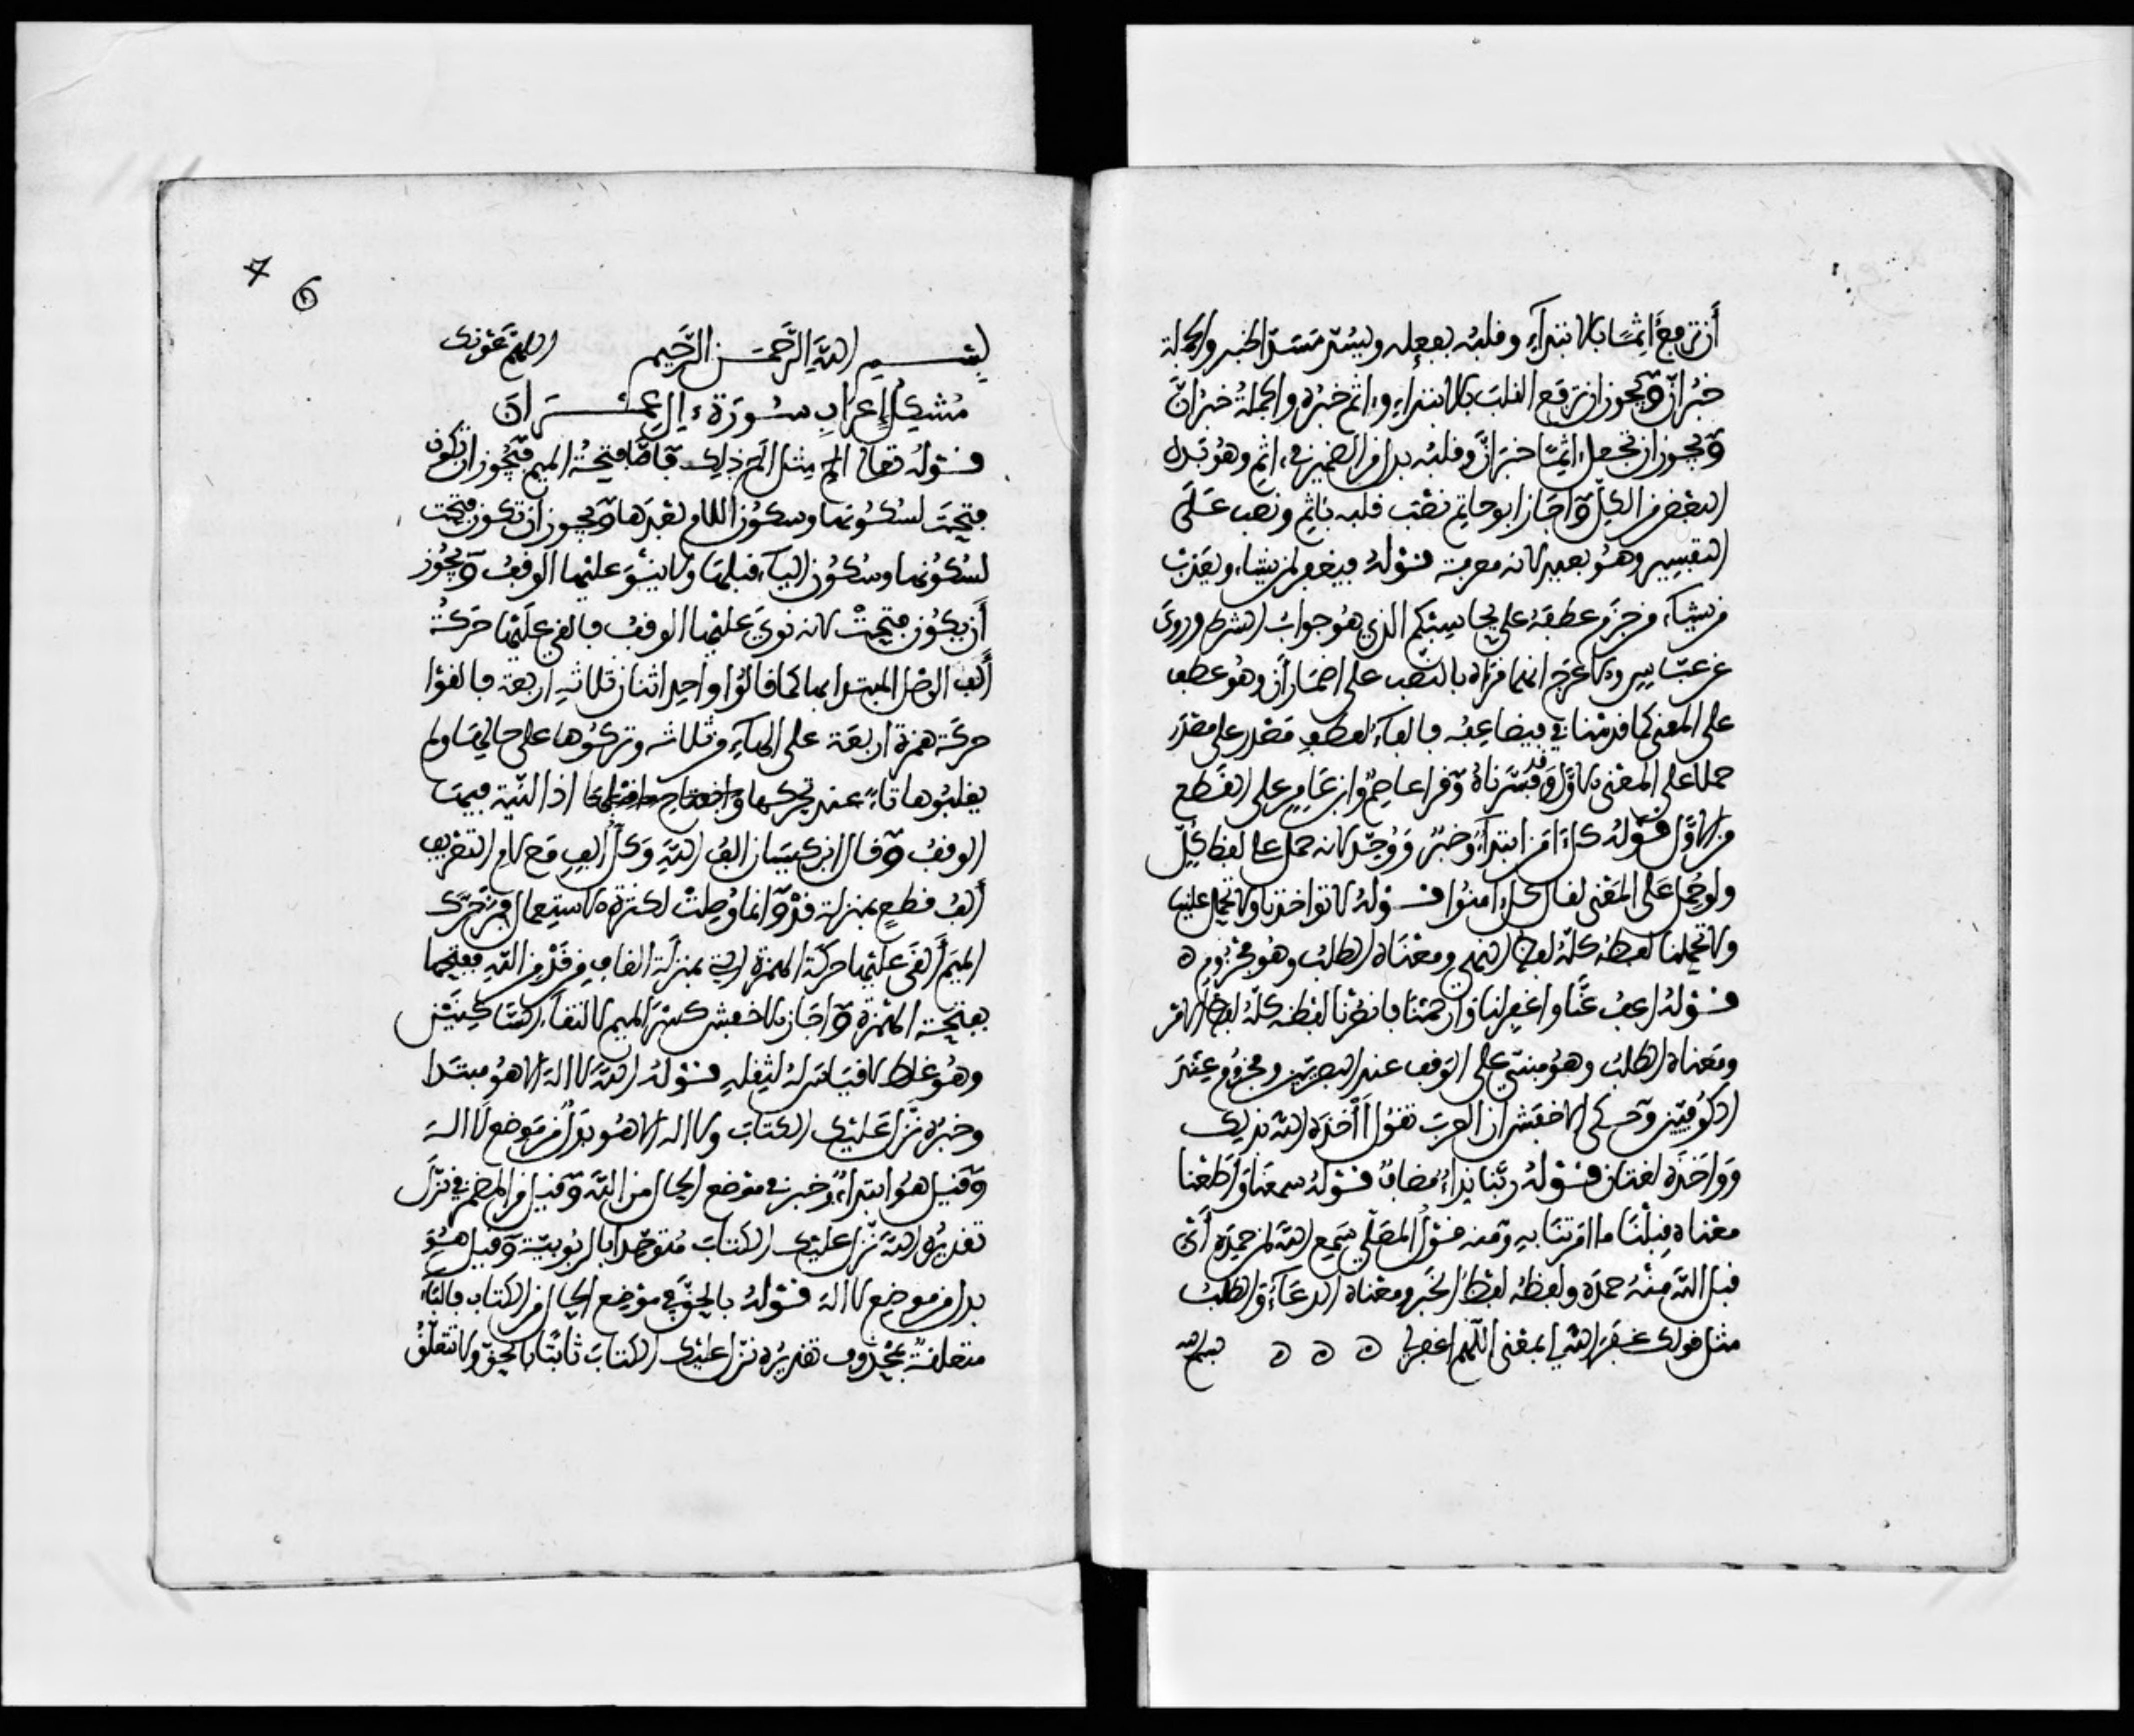 أن ترفع آثما بالابتداء وقلبه بفعله ويسد مسد الخبر والجملة
خبر إن ويجوز أن ترفع القلب بالابتداء وءاثم خبره والجملة خبر إن
ويجوز أن تجعل ءاثما خبر إن وقلبه بدل من الضمير في ءاثم وهو بدل
البعض من الكل وأجاز أبو حاتم نصب قلبه بآثم ونصب على
التفسير وهو بعيد لانه معرفة قوله فيغفر لمن يشاء ويعذب
من يشاء من جزم عطفه على يحاسبكم الذي هو جواب الشرط وروي
عن عباس والاعرج انهما قراه بالنصب على اضمار أن وهو عطف
على المعنى كما قدمنا في فيضاعفه فالفاء لعطف مصدر على مصدر
حملا على المعنى الاول وقد فسرناه وقرأ عاصم وابن عامر على القطع
من الاول قوله كل ءامن ابتداء وخبر ووحد لانه حمل على لفظ كل
ولو حمل على المعنى لقال كل ءامنوا قوله لا تواخذنا ولا تحمل علينا
ولا تحملنا لفظه كله لفظ النهي ومعناه الطلب وهو مجزوم ه
قوله واعف عنا واغفر لنا وارحمنا فانصرنا لفظه كله لفظ الامر
ومعناه الطلب وهو مبني على الوقف عند البصريين ومجزوم عند
الكوفيين وحكى الاخفش ان العرب تقول أآخذه الله بذلك
وواخذه لغتان قوله ربنا نداء مضاف قوله سمعنا وأطعنا
معناه قبلنا ما امرتنا به ومنه قول المصلي سمع الله لمن حمده أي
قبل الله منه حمده ولفظه لفظ الخبر ومعناه الدعاء والطلب
مثل قولك غفر الله لي بمعنى اللهم اغفر لي ه ه ه بسم الله
7 6
بسم الله الرحمن الرحيم اللهم عونك
مشكل إعراب سورة ءال عمران
قوله تعالى الم مثل الم ذلك فاما فتحة الميم فيجوز ان تكون
فتحت لسكونها وسكون اللام بعدها ويجوز أن تكون فتحت
لسكونها وسكون الياء قبلها ولا ينوى عليها الوقف ويجوز
أن يكون فتحت لانه نوي عليها الوقف فألقي عليها حركة
ألف الوصل المبتدا بها كما قالوا واحد اثنان ثلاثه اربعة فالقوا
حركة همزة اربعة على الهاء من ثلاثه وتركوها على حالها ولم
يقلبوها تاء عند تحركها اذ النية فيها
الوقف وقال ابن كيسان الف الله وكل ألف مع لام التعريف
ألف قطع بمنزلة قد وانما وصلت لكثرة الاستعمال فمن حرك
الميم ألقى عليها حركة الهمزة التي بمنزلة القاف من قد من الله ففتحها
بفتحة الهمزة وأجاز الاخفش كسر الميم لالتقاء الساكنين
وهو غلط لا قياس له لثقله قوله الله لا اله الا هو مبتدا
وخبره نزل عليك الكتاب ولا اله الا هو بدل من موضع لا اله
وقيل هو ابتداء وخبر في موضع الحال من الله وقيل من المضمر في نزل
تقديره الله نزل عليك الكتاب متوحدا بالربوبية وقيل هو
بدل من موضع لا اله قوله بالحق في موضع الحال من الكتاب فالباء
متعلقة بمحذوف تقديره نزل عليك الكتاب ثابتا بالحق ولا تتعلق